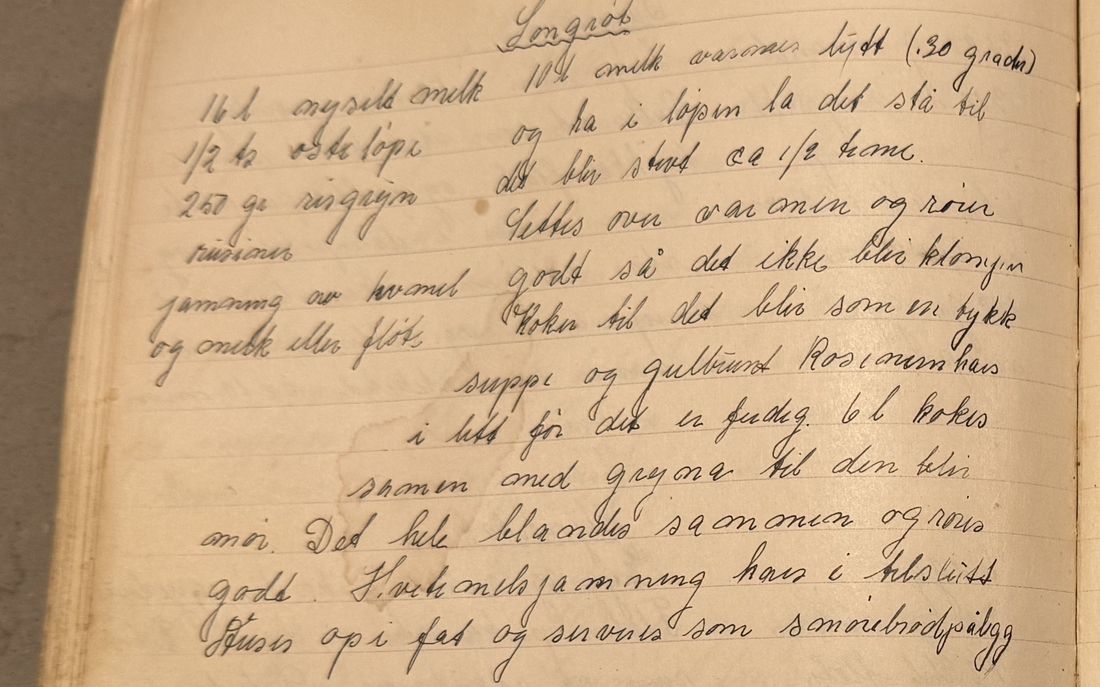 Longrøt
16 l nysilt melk
1/2 ts osteløpe
250 gr risgryn
rusiner
jamning av hvmel
og melk eller fløte
10 l melk varmes lydt (.30 grader)
og ha i løpen la det stå til
det blir stivt ca 1/2 time.
Settes over varmen og rører
godt så det ikke blir klompen
Koker til det blir som en tykk
suppe og gulbrunt Rosinene haes
i litt før det er ferdig. 6 l kokes
samen med gryna til den blir
mør. Det hele blandes sammen og røres
godt. Hvetemelsjamning haes i tilslutt
Auses op i fat og serveres som smørebrødpålegg